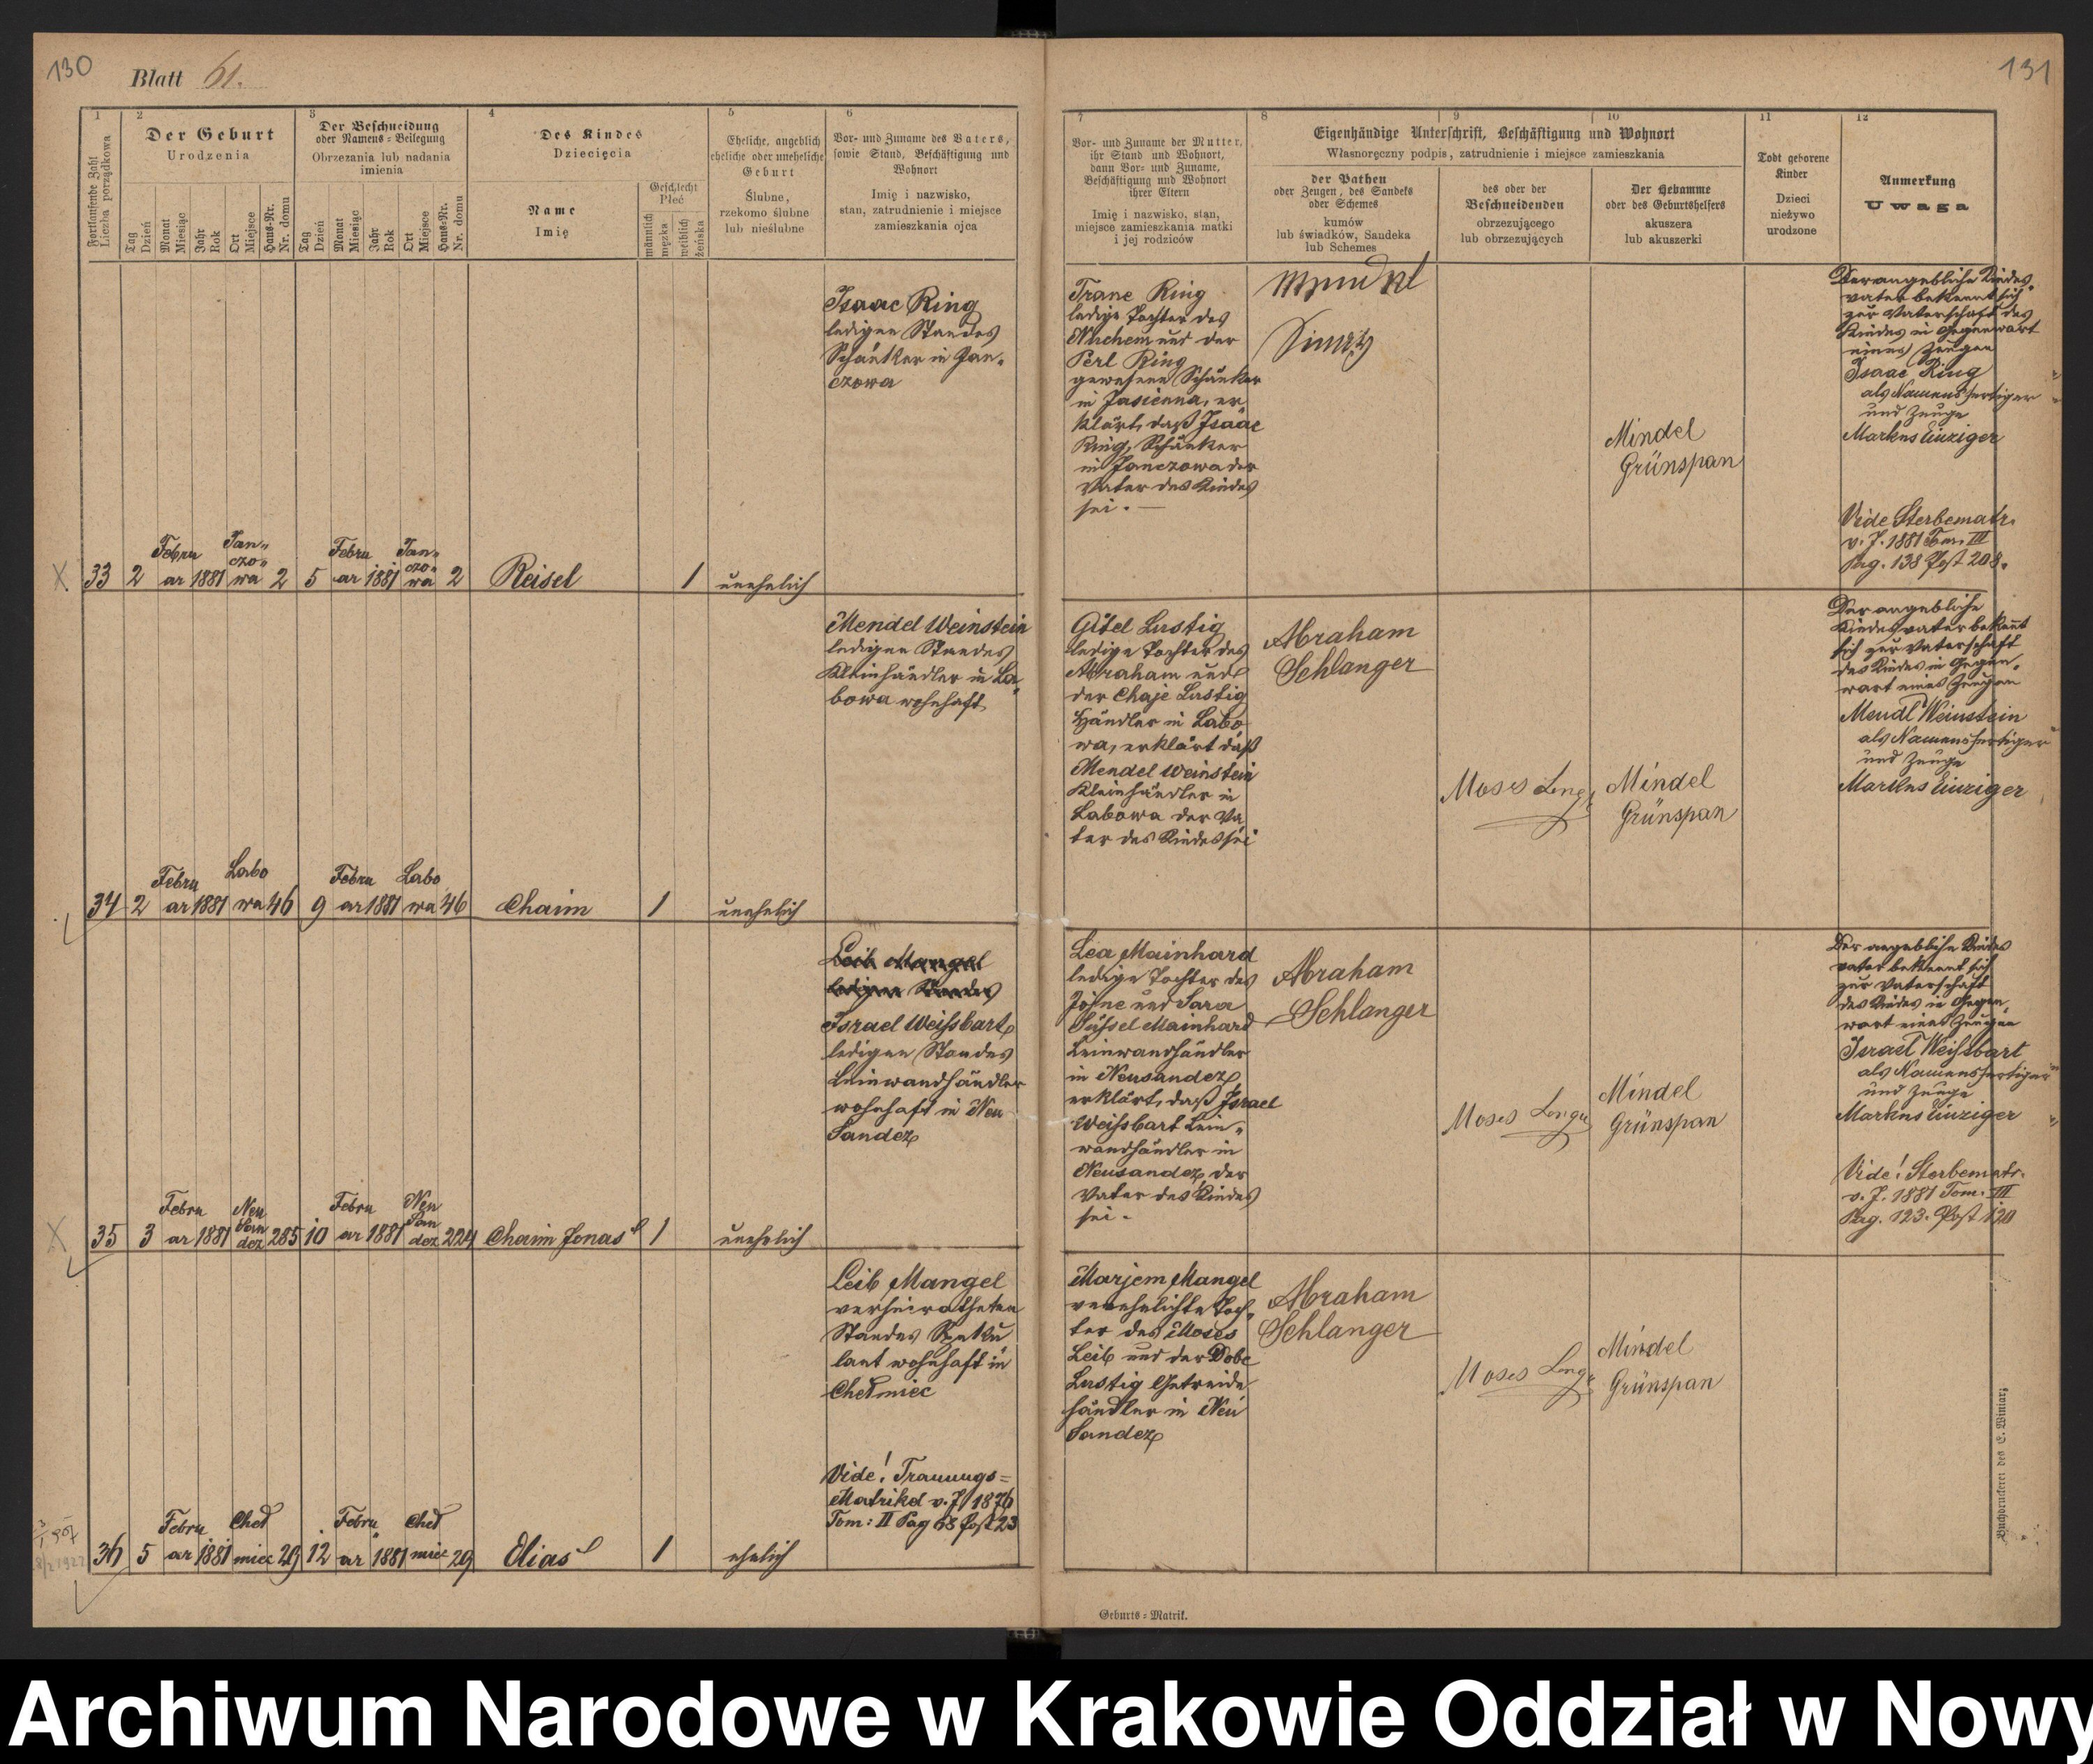 130
Blatt 61.
131
1
Fortlaufende Zahl
Liczba porządkowa
2
Der Geburt
Urodzenia
Tag
Dzień
Monat
Miesiąc
Jahr
Rok
Ort
Miejsce
Haus-Nr.
Nr. domu
3
Der Beschneidung
oder Namens-Beilegung
Obrzezania lub nadania
imienia
Tag
Dzień
Monat
Miesiąc
Jahr
Rok
Ort
Miejsce
Haus-Nr.
Nr. domu
4
Des Kindes
Dziecięcia
Name
Imię
Geschlecht
Płeć
männlich
męzka
weiblich
żeńska
5
Eheliche, angeblich
eheliche oder uneheliche
Geburt
Ślubne,
rzekomo ślubne
lub nieślubne
6
Vor- und Zuname des Vaters,
sowie Stand, Beschäftigung und
Wohnort
Imię i nazwisko,
stan, zatrudnienie i miejsce
zamieszkania ojca
7
Vor- und Zuname der Mutter,
ihr Stand und Wohnort,
dann Vor- und Zuname,
Beschäftigung und Wohnort
ihrer Eltern
Imię i nazwisko, stan,
miejsce zamieszkania matki
i jej rodziców
8
9
10
Eigenhändige Unterschrift, Beschäftigung und Wohnort
Własnoręczny podpis, zatrudnienie i miejsce zamieszkania
der Pathen
oder Zeugen, des Sandeks
oder Schemes
kumów
lub świadków, Sandeka
lub Schemes
des oder der
Beschneidenden
obrzezującego
lub obrzezujących
Der Hebamme
oder des Geburtshelfers
akuszera
lub akuszerki
11
Todt geborene
Kinder
Dzieci
nieżywo
urodzone
12
Anmerkung
Uwaga
X 33 2 Februar 1881 Janczowa 2 5 Februar 1881 Janczowa 2 Reisel 1 unehelich
Isaac Ring
ledigen Standes
Schänker in Jan-
czowa
Trane Ring
ledige Tochter des
und der
Perl Ring
gewesene Schänker
in Jasienna, er
klärt, daß Isaac
Ring, Schänker
in Janczowa der
Vater des Kindes
sei. —
Mindel
Grünspan
Der angebliche Kindes-
vater bekennt sich
zur Vaterschaft des
Kindes in Gegenwart
eines Zeugen
Isaac Ring
als Namensfertiger
und Zeuge
Markus Einziger
Vide Sterbematr.
v. J. 1881 Tom. III
Pag. 138 Post 208.
34 2 Februar 1881 Labowa 46 9 Februar 1881 Labowa 46 Chaim 1 unehelich
Mendel Weinstein
ledigen Standes
Kleinhändler in La-
bowa wohnhaft
Gitel Lustig
ledige Tochter des
Abraham und
der Chaje Lustig
Händler in Labo
wa, erklärt daß
Mendel Weinstein
Kleinhändler in
Labowa der Va
ter des Kindes sei
Abraham
Schlanger
Moses
Mindel
Grünspan
Der angebliche
Kindesvater bekennt
sich zur Vaterschaft
des Kindes in Gegen-
wart eines Zeugen
Mendl Weinstein
als Namensfertiger
und Zeuge
Markus Einziger
X 35 3 Februar 1881 Neu Sandez 285 10 Februar 1881 Neu Sandez 224 Chaim Jonas 1 unehelich
Leib Mangel
ledigen Standes
Israel Weissbart
ledigen Standes
Leinwandhändler
wohnhaft in Neu
Sandez
Lea Mainhard
ledige Tochter des
und Sara
Süssel Mainhard
Leinwandhändler
in Neusandez
erklärt, daß Israel
Weissbart Lein-
wandhändler in
Neusandez der
Vater des Kindes
sei.
Abraham
Schlanger
Moses
Mindel
Grünspan
Der angebliche Kindes
vater bekennt sich
zur Vaterschaft
des Kindes in Gegen-
wart eines Zeugen
Israel Weissbart
als Namensfertiger
und Zeuge
Markus Einziger
Vide! Sterbematr.
v. J. 1881 Tom. III
Pag. 123. Post 120
36 5 Februar 1881 Chełmiec 29 12 Februar 1881 Chełmiec 29 Elias 1 ehelich
Leib Mangel
verheiratheten
Standes Speku
lant wohnhaft in
Chełmiec
Vide! Trauungs-
Matrikel v. J. 1876
Tom: II Pag 68 Post 23
Marjem Mangel
verehelichte Toch-
ter des Moses
Leib und der Dobe
Lustig Getreide
händler in Neu
Sandez
Abraham
Schlanger
Moses
Mindel
Grünspan
Buchdruckerei des E. Winiarz
Geburts-Matrik.
Archiwum Narodowe w Krakowie Oddział w Nowy